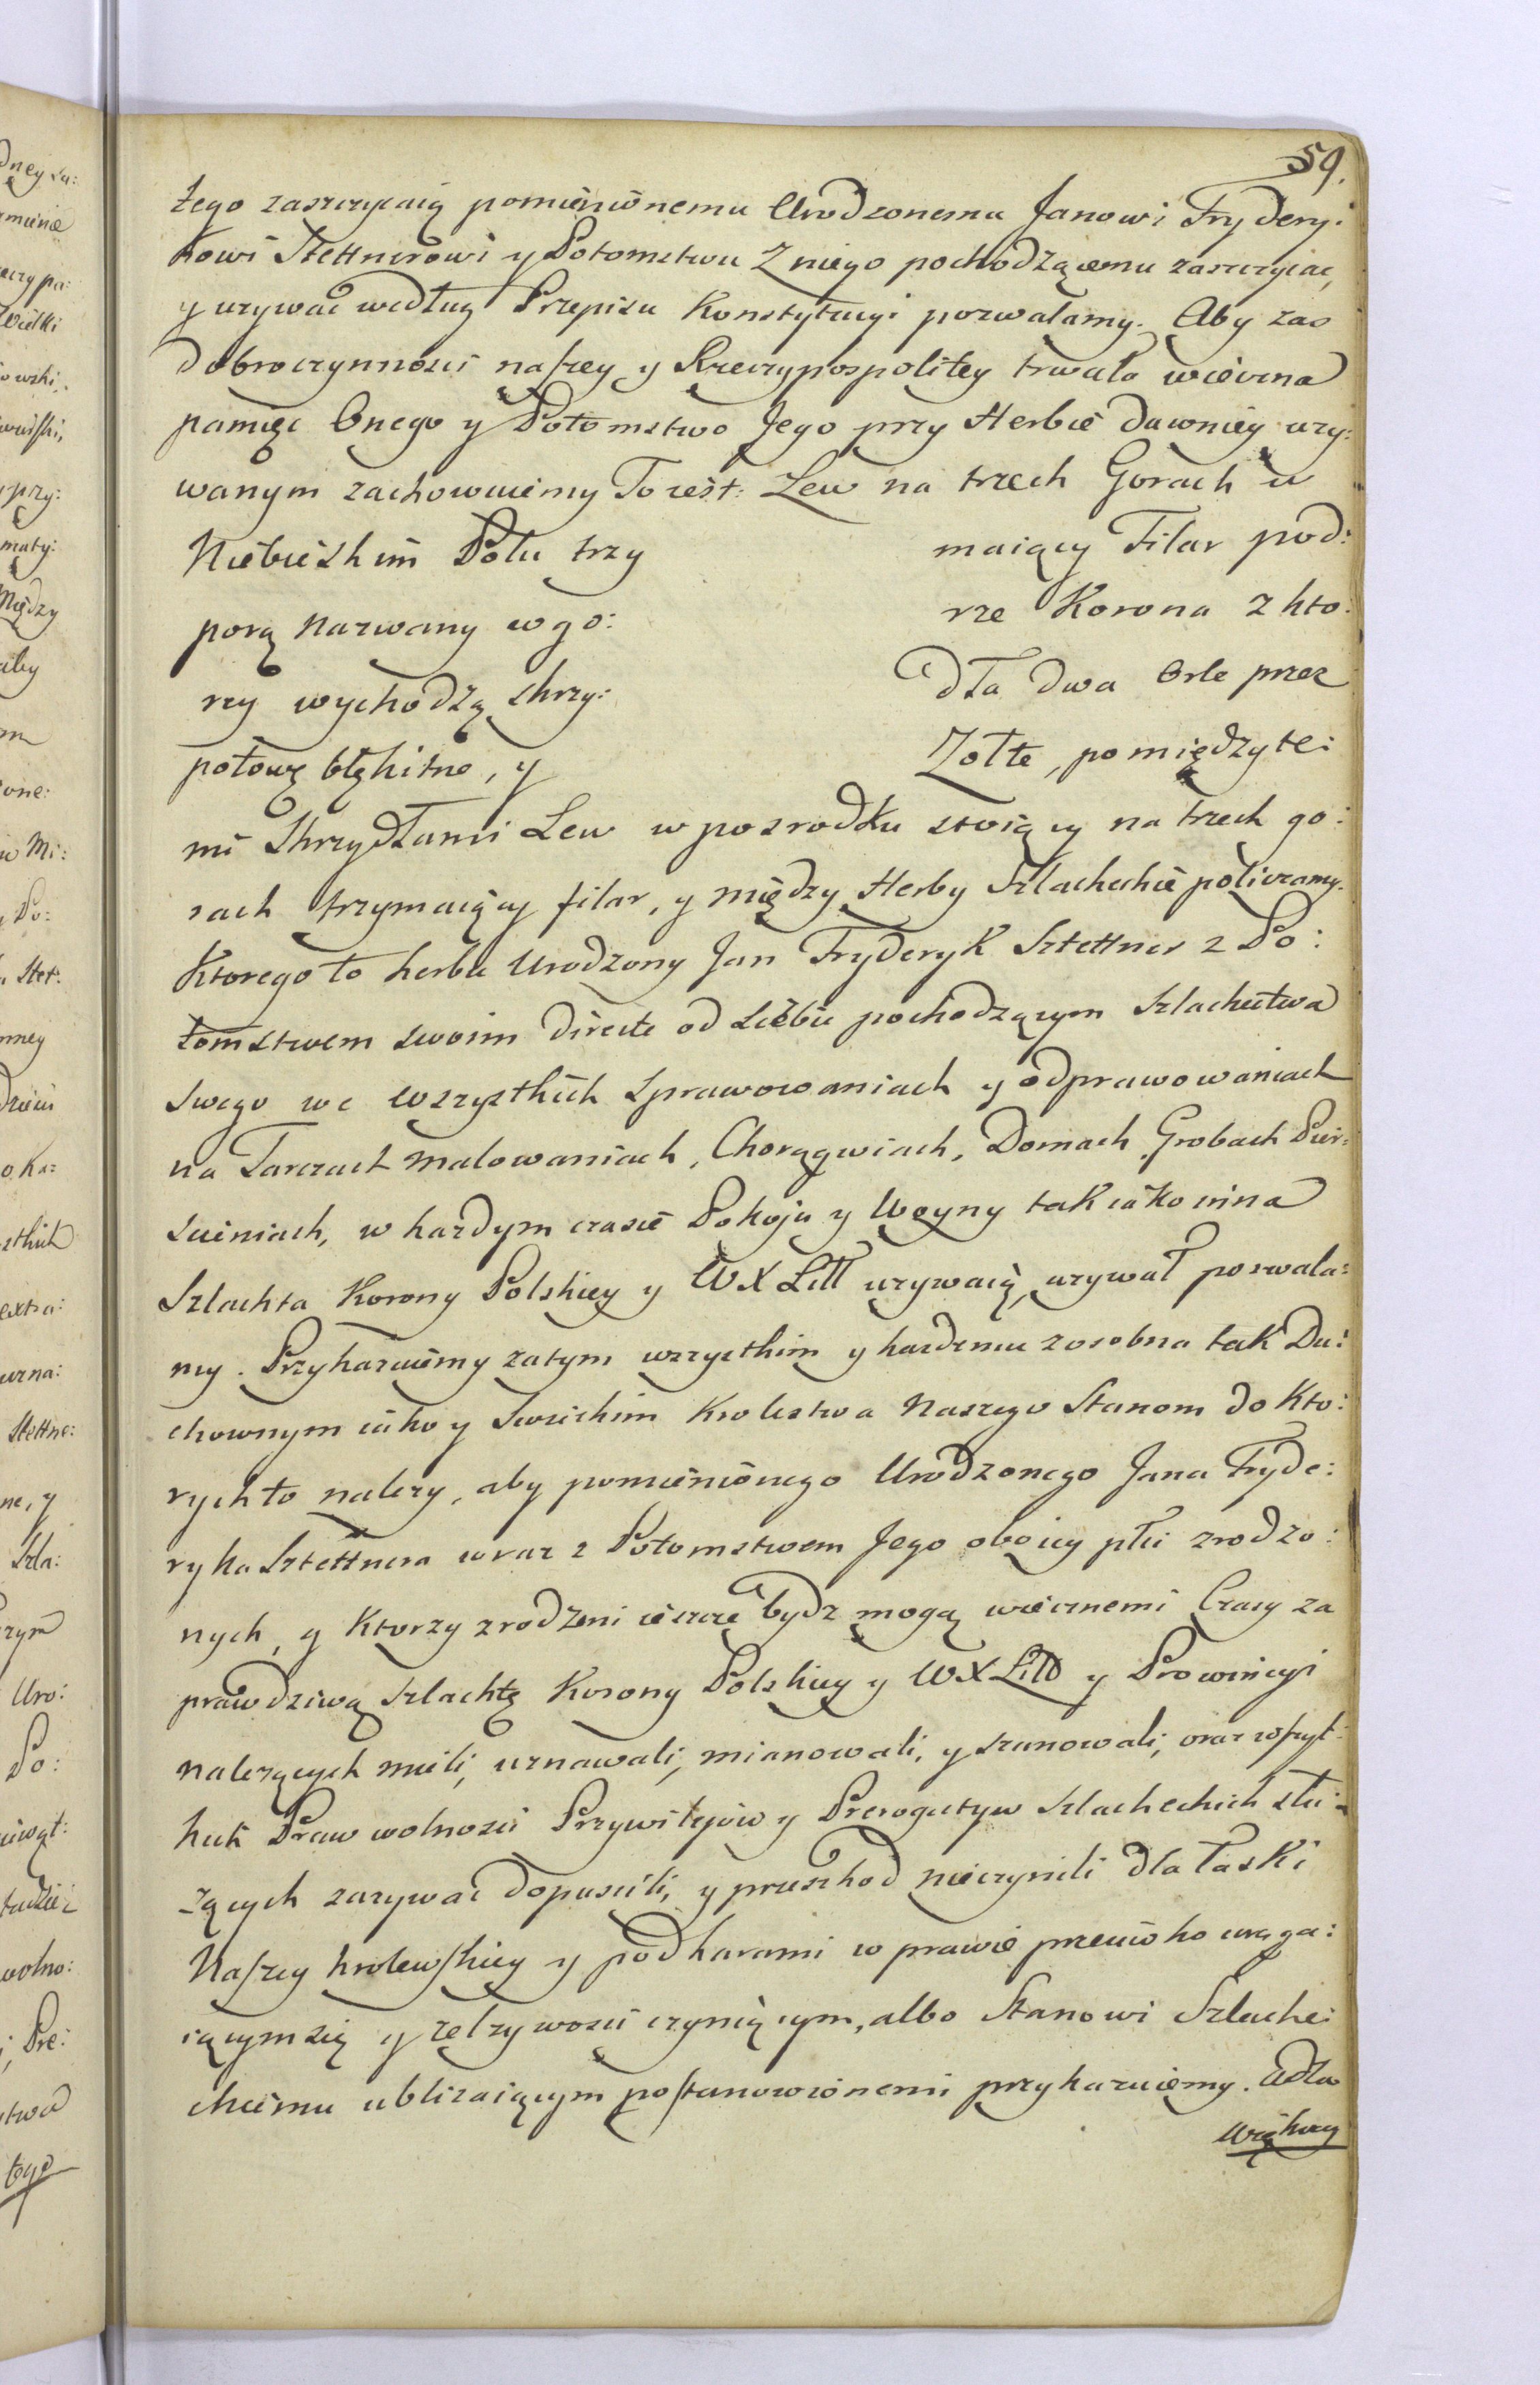 59.
tego zaszczycaią pomienionemu Urodzonemu Janowi Frydery:
kowi Stettnerowi y Potomstwu Z niego pochodzącemu zaszczycac,
y uzywać według Przepisu Konstytucyi pozwalamy. Aby zas
dobroczynnosci naszey y Rzeczypospolitey trwała wieczna
pamięc Onego y Potomstwo Jego przy Herbie dawniey uzy:
wanym zachowuiemy To iest: Lew na trzech Gorach w
Niebieskim Polu trzy maiący Filar pod:
porą nazwany w go: rze Korona z kto:
rey wychodzą skrzy: dła dwa Orle przez
połowę błękitne, y Zołte, pomiędzy te:
mi Skrzydłami Lew w posrodku stoiący na trzech go:
rach trzymaiący filar, y między Herby Szlacheckie policzamy.
Ktorego to herbu Urodzony Jan Fryderyk Sztettner z Po:
tomstwem swoim directe od siebie pochodzącym Szlachectwa
swego we wszystkich sprawowaniach y odprawowaniach
na Tarczach malowaniach, Chorągwiach, Domach, Grobach Pier:
scieniach, w kazdym czasie Pokoju y Woyny tak iako inna
Szlachta Korony Polskiey y WXLitt uzywaią, uzywał pozwala:
my. Przykazuiemy zatym wszystkim y kazdemu zosobna tak Du:
chownym iako y Swieckim Krolestwa Naszego Stanom do Kto:
rych to nalezy, aby pomienionego Urodzonego Jana Fryde:
ryka Sztettnera wraz z Potomstwem Jego oboiey płci zrodzo:
nych, y Ktorzy zrodzeni ieszcze bydz mogą wiecznemi Czasy za
prawdziwą Szlachtę Korony Polskiey y WXLitt y Prowincyi
nalezących mieli, uznawali, mianowali, y szanowali, oraz wszyst:
kich Praw wolnosci Przywilejow y Prerogatyw Szlacheckich słu:
zących zazywać dopuscili, y przeszkod nieczynili dla łaski
Naszey krolewskiey y pod karami w prawie przeciwko urąga:
iącym się y zelzywosci czyniącym, albo Stanowi Szlache:
ckiemu ublizaiącym postanowionemi przykazuiemy. Adla
większey